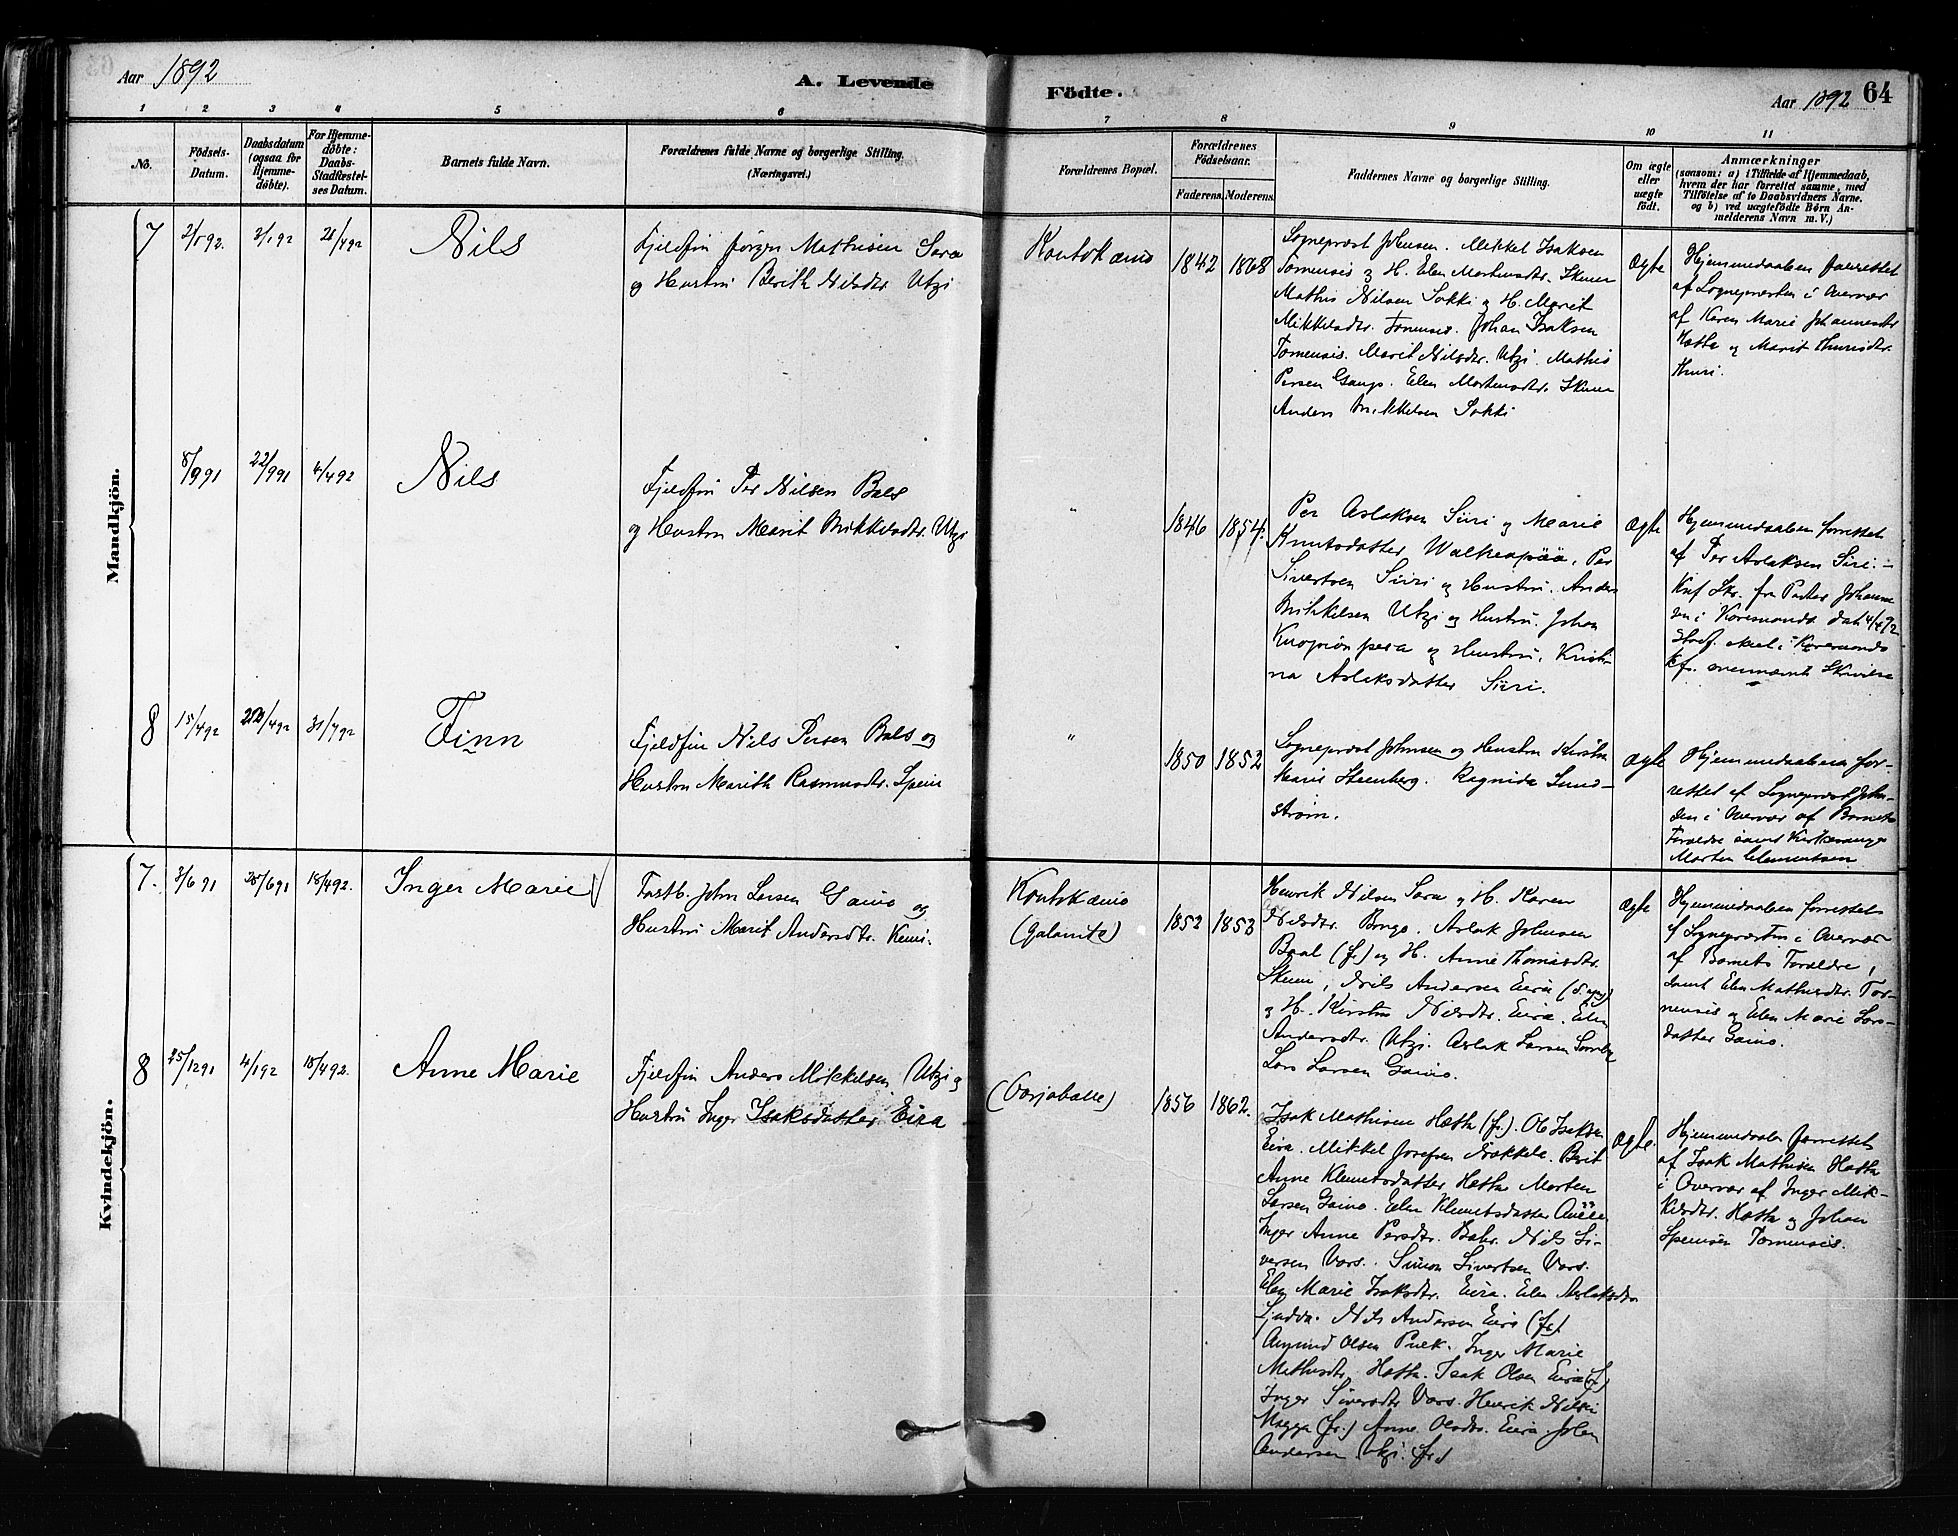 Aar 1892
A. Levende
Födte.
Aar 1892
64
1 2 3 4 5 6 7 8 9 10 11
No.
Födsels-
Datum.
Daabsdatum
(ogsaa for
Hjemme-
döbte).
For Hjemme-
döbte:
Daabs-
Stadfæstel-
ses Datum.
Barnets fulde Navn.
Forældrenes fulde Navne og borgerlige Stilling.
(Næringsvei.)
Forældrenes Bopæl.
Forældrenes
Födselsaar.
Faderens. Moderens.
Faddernes Navne og borgerlige Stilling.
Om ægte
eller
uægte
födt.
Anmærkninger
(saasom: a) i Tilfælde af Hjemmedaab,
hvem der har forrettet samme, med
Tilföielse af to Daabsvidners Navne.
og b) ved uægtefödte Börn An-
melderens Navn m. V.)
Mandkjön.
7 2/1 92. 2/1 92 21/4 92 Nils
Fjeldfin Jörgen Mathisen Sara
og Hustru Berith Nilsdtr Utzi
Koutokæino 1842 1868
Sognepræst Johnsen. Mikkel Isaksen
Tornensis og H. Elen Mortensdtr. Skum
Mathis Nilsen Sokki og H. Marit
Mikkelsdtr. Tornensis. Johan Isaksen
Tornensis. Marit Nilsdtr. Utzi. Mathis
Persen Gaup. Elen Mortensdtr. Skum
Anders Mikkelsen Sokki
Ægte
Hjemmedaaben forrettet
af Sognepræsten i Overvær
af Karen Marie Johannesdtr
Hætta og Marit Thurisdtr.
Thuri.
8/9 91 22/9 91 4/4 92 Nils
Fjeldfin Per Nilsen Bals
og Hustru Marit Mikkelsdtr. Utzi
" 1846 1854.
Per Aslaksen Siri og Marie
Knutsdatter Walkeapää, Per
Sivertsen Siiri og Hustru. Anders
Mikkelsen Utzi og Hustru. Johan
Kuopionpera og Hustru. Kristi-
na Aslaksdatter Siiri.
Ægte
Hjemmedaaben forrettet
af Per Aslaksen Siri. -
Knf. Skr. fra Pastor Johans
sen i Karesuando dat. 4/4 92
Stadf. skeet i Karesuando
kf. ovennævnte Skrivelse
8 15/4 92 22/4 92 31/7 92 Finn
Fjeldfin Nils Persen Bals og
Hustru Marith Rasmusdtr. Spein
" 1850 1852
Sognepræst Johnsen og Hustru Kirstin
Marie Steenberg. Ragnida Lund-
ström.
Ægte
Hjemmedaaben for-
rettet af Sognepræst John-
sen i Overvær af Barnets
Forældre samt Kirkesanger
Morten Clementsen
Kvindekjön.
7. 3/6 91 28/6 91 18/4 92. Inger Marie
Fastb. John Larsen Gaino og
Hustru Marit Andersdtr. Kemi.
Koutokæino
(Galanito) 1852 1853
Henrik Nilsen Sara og H. Karen
Nilsdtr. Bongo. Aslak Johnsen
Baal (fr) og H. Anne Thomasdtr.
Skum, Nils Andersen Eira (d. yng)
og H. Kirsten Nilsdtr. Eira. Elen
Andersdtr. Utzi. Aslak Larsen Somby
Lars Larsen Gaino.
Ægte
Hjemmedaaben forrettet
af Sognepræsten i Overvær
af Barnets Forældre,
samt Elen Mathisdtr. Tor-
nensis og Elen Marie Lars-
datter Gaino.
8 25/12 91 4/1 92 18/4 92. Anne Marie
Fjeldfin Anders Mikkelsen Utzi og
Hustru Inger Isaksdatter Eira
(Vorjoballe) 1856 1862.
Isak Mathisen Hætta (fr.). Ole Isaksen
Eira. Mikkel Josefsen Nækkela. Berit
Anne Klemetsdatter Hætta Morten
Larsen Gaino. Elen Klemetsdatter
Inger Anne Persdtr. Bahr. Nils Si-
versen Vars. Simon Sivertsen Vars.
Elen Marie Isaksdtr. Eira. Elen Aslaksdtr.
Nils Andersen Eira (fr).
Amund Olsen Pulk. Inger Marie
Mathisdtr. Hætta. Isak Olsen Eira (fr)
Inger Siversdtr Vars. Henrik Nilsen
Magga (fr.) Anne Olsdtr. Eira John
Andersen Utzi. (fr)
Ægte.
Hjemmedaaben forrettet
af Isak Mathisen Hætta
i Overvær af Inger Mik-
kelsdtr. Hætta og Johan
Speinsen Tornensis.